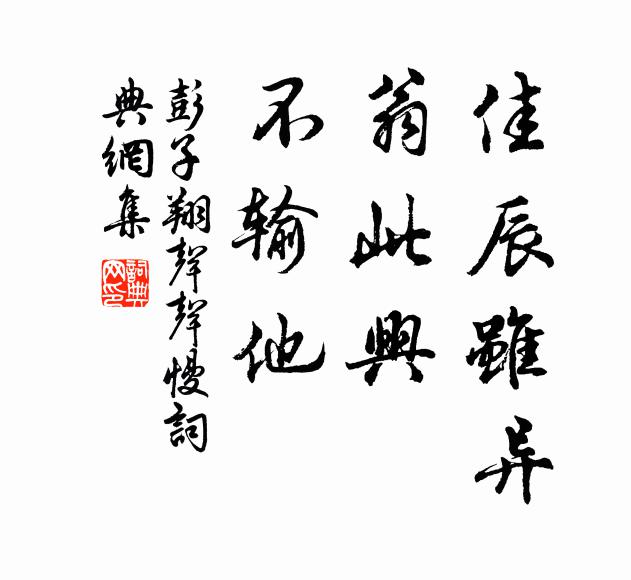 佳辰雖异
翁此興
不输他
彭子翔聲聲慢詞
典網集
詞典
网印